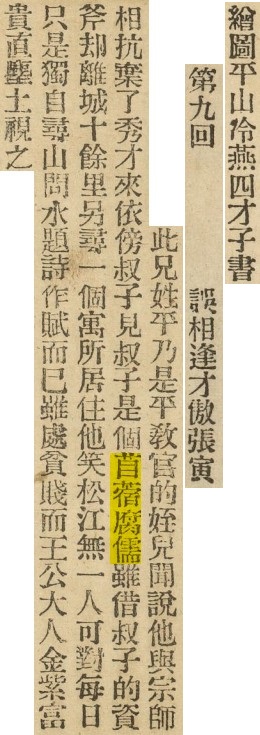 繪圖平山冷燕四才子書
第九回　誤相逢才傲張寅
此兄姓平乃是平教官的姪兒聞說他與宗師
相抗棄了秀才來依傍叔子見叔子是個苜蓿腐儒雖借叔子的資
斧却離城十餘里另尋一個寓所居住他笑松江無一人可對每日
只是獨自尋山問水題詩作賦而已雖處貧賤而王公大人金紫富
貴直塵土視之